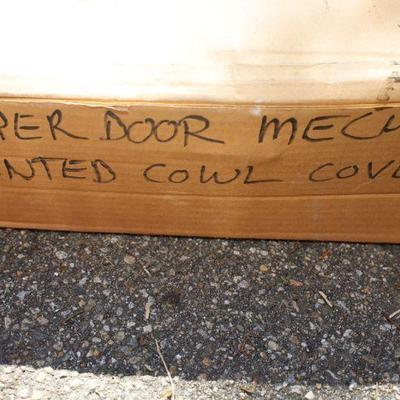 PER DOOR MECH
NTED COWL COV